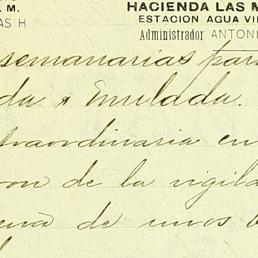 . M.
AS H
HACIENDA LAS M
ESTACION AGUA VI
Administrador ANTONI
semanarias par
da y Emilada.
traordinaria en
on de la vigila
de unos